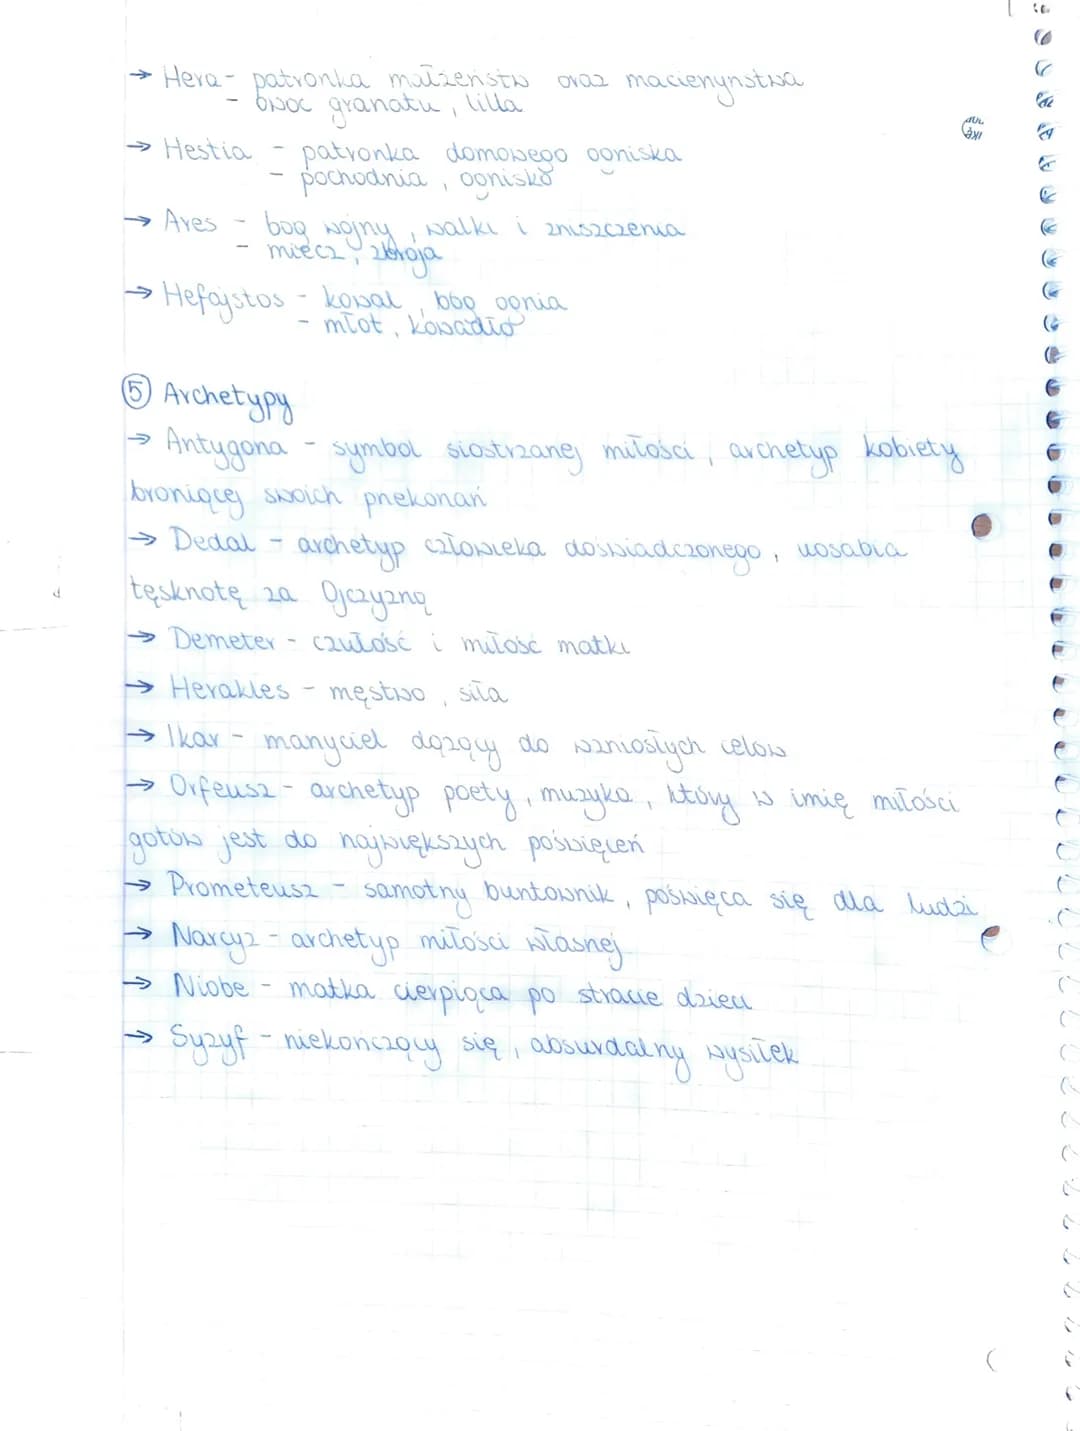 → Hera - patronka małżeństw oraz macierzyństwa
- owoc granatu, lilia
→ Hestia - patronka domowego ogniska
- pochodnia, ognisko
→ Ares - bóg wojny, walki i zniszczenia
- miecz, zbroja
→ Hefajstos - kowal, bóg ognia
- młot, kowadło
⑤ Archetypy
→ Antygona - symbol siostrzanej miłości, archetyp kobiety
broniącej swoich przekonań
→ Dedal - archetyp człowieka doświadczonego, uosabia
tęsknotę za Ojczyzną
→ Demeter - czułość i miłość matki
→ Herakles - męstwo, siła
→ Ikar - marzyciel dążący do wzniosłych celów
→ Orfeusz - archetyp poety, muzyka, który w imię miłości
gotów jest do największych poświęceń
→ Prometeusz - samotny buntownik, poświęca się dla ludzi
→ Narcyz - archetyp miłości własnej
→ Niobe - matka cierpiąca po stracie dzieci
→ Syzyf - niekończący się, absurdalny wysiłek